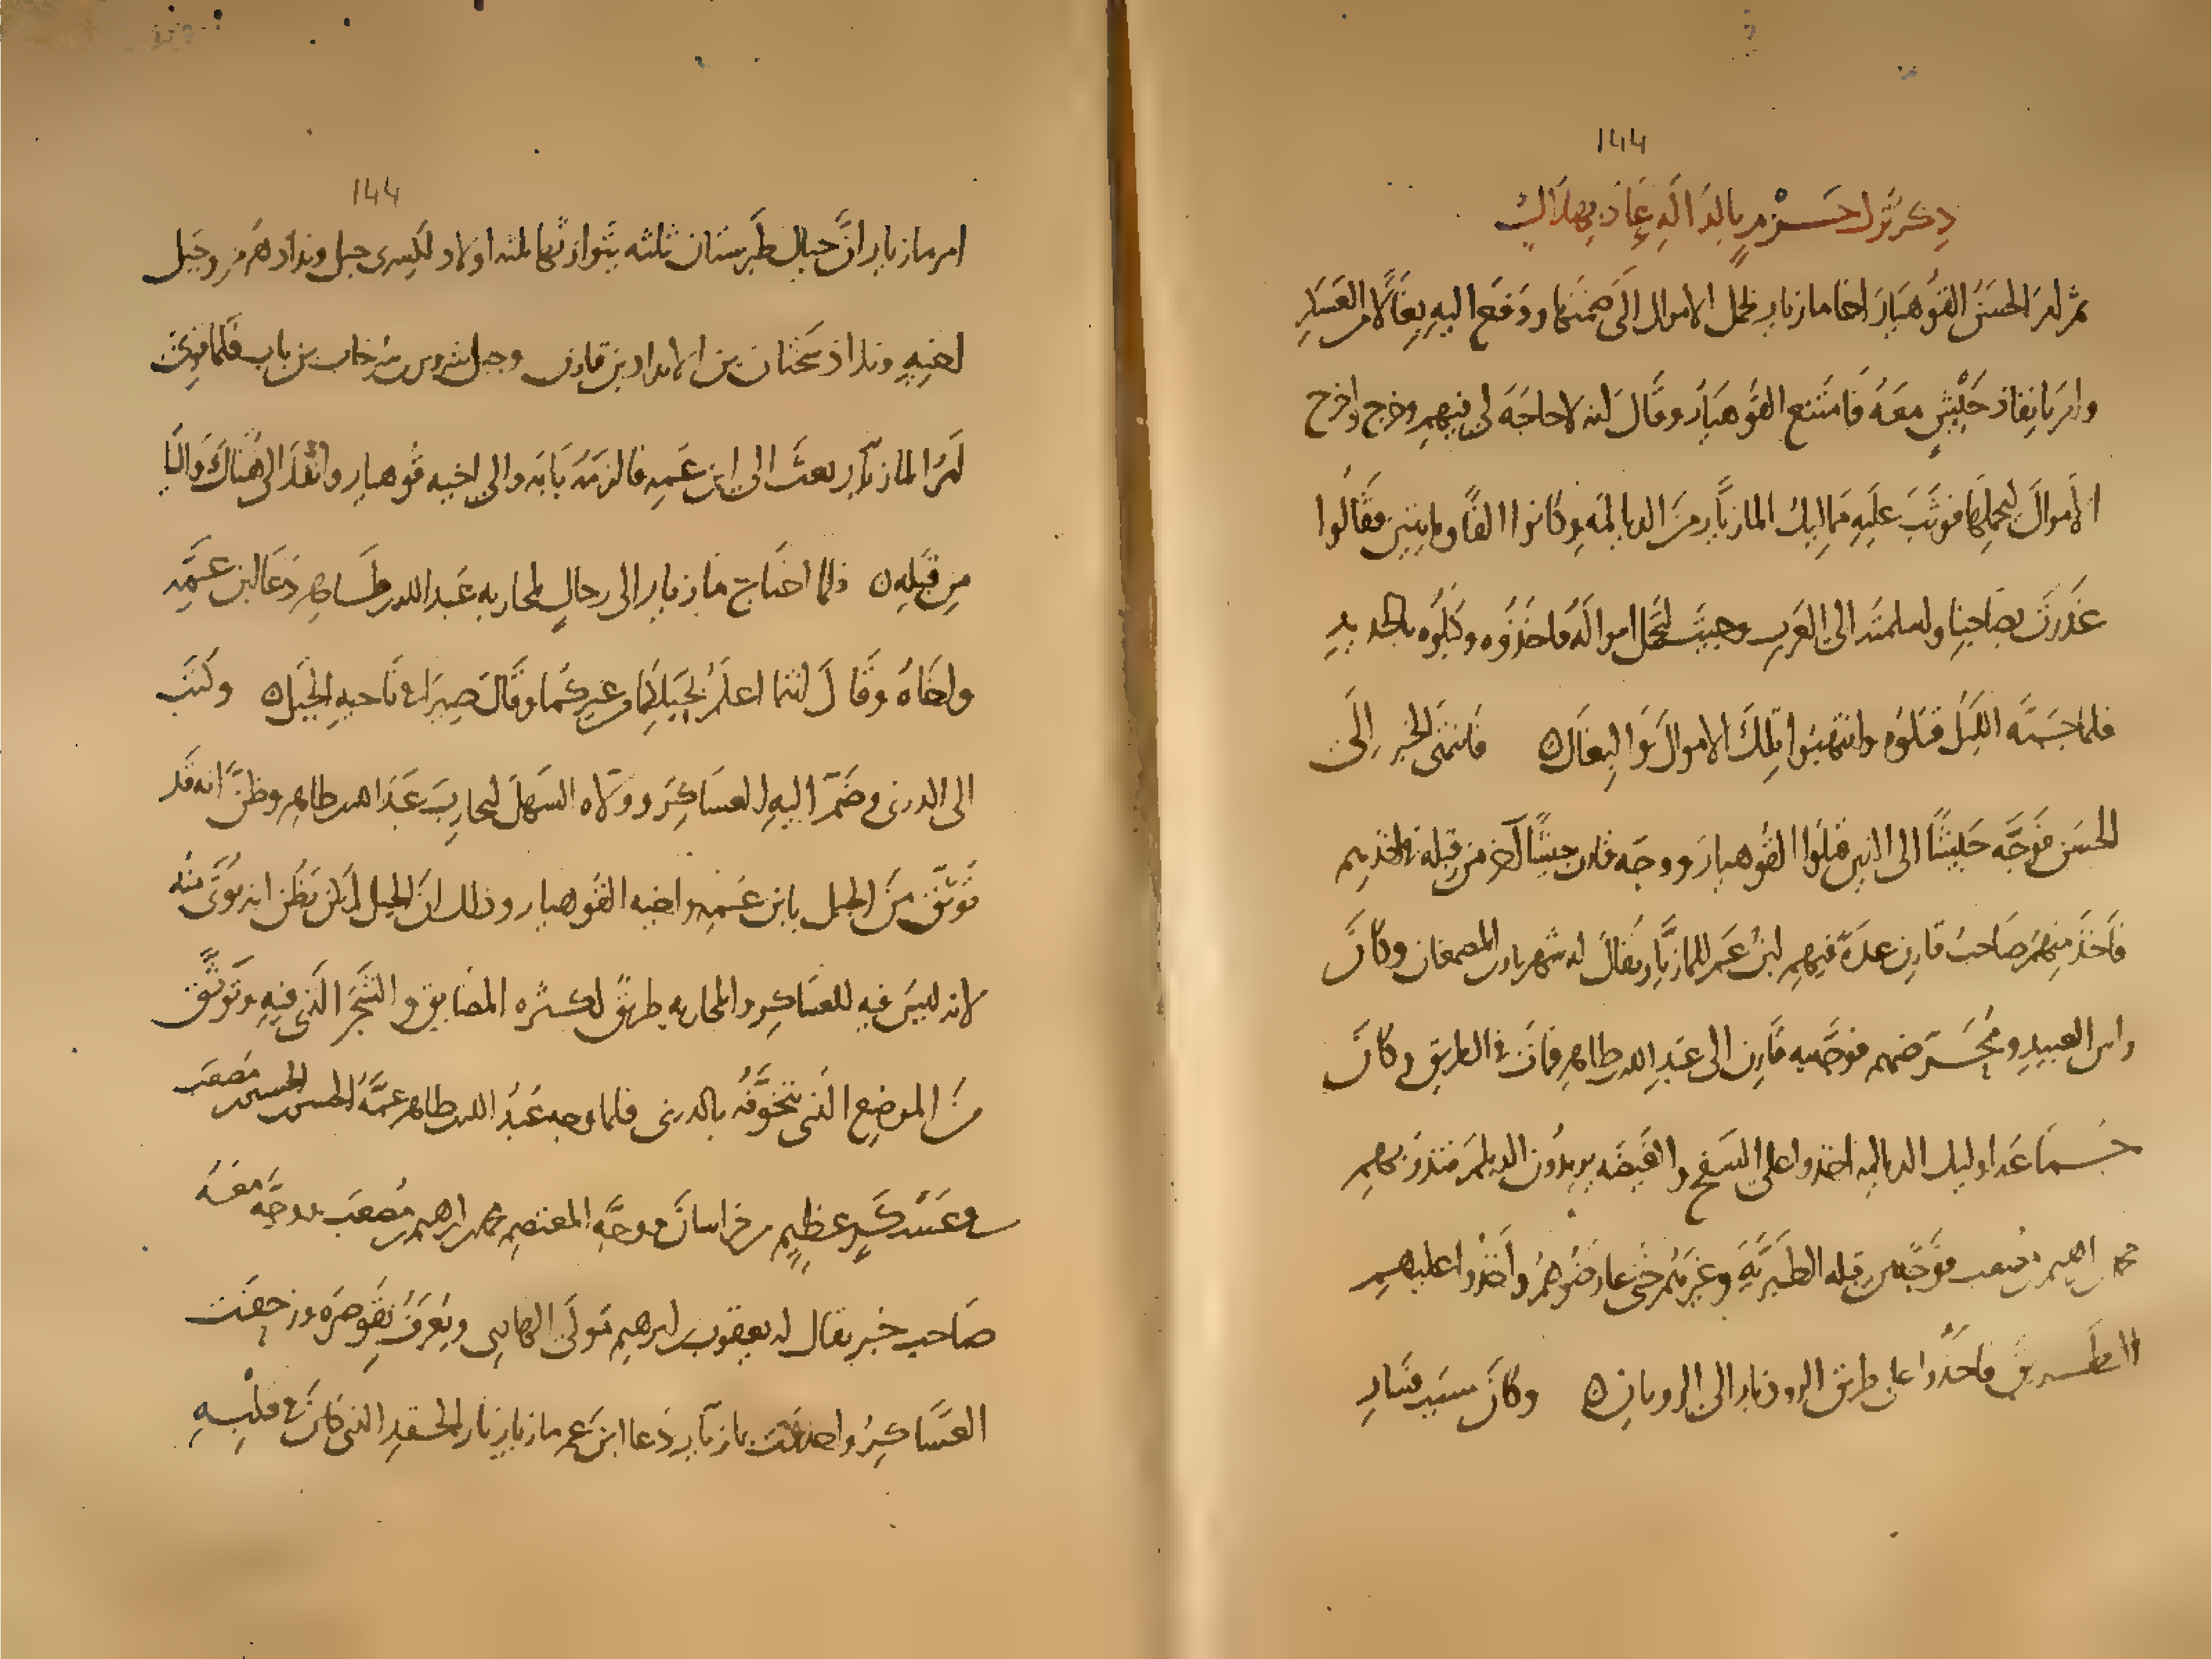 ١٤٤
ذكر ترك حزم بالدالة عاد بهلاك
ثم امر الحسن القوهيار اخا مازيار بحمل الاموال التى ضمنها ودفع اليه بغالا من العسكر
وامر بانفاذ جيش معه فامتنع القوهيار وقال لنه لا حاجة لى فيهم وخرج واخرج
الاموال ليحملها فوثب عليه مماليك المازيار من الديالمة وكانوا الفا ومايتين فقالوا
غدرت بصاحبنا واسلمته الى العرب وجيت لتحمل امواله فاخذوه وكبلوه بالحديد
فلما جنه الليل قتلوه وانتهبوا تلك الاموال والبغال ه فانتهى الخبر الى
الحسن فوجه جيشا الى الذين قتلوا القوهيار ووجه قارن جيشا آخر من قبله لاخذهم
فاخذ منهم صاحب قارن عدة فيهم ابن عم للمازيار يقال له شهريار بن المصمغان وكان
راس العبيد ومحرضهم فوجه به قارن الى عبد الله بن طاهر فمات فى الطريق وكان
جماعه اوليك الديالمه اخذوا على السفح والغيضه يريدون الديلم فنذر بهم
محمد بن ابرهيم بن مصعب فوجه من قبله الطبرية وغيرهم حتى عارضوهم واخذوا عليهم
الطريق فاخذوا على طريق الروذبار الى الرويان ه وكان سبب فساد
١٤٤
امر مازيار ان جبال طبرستان ثلثه يتوارثها ثلثه اولاد لكسرى جبل ونداد هرمز وجبل
اخيه ونداذ سختان بن الانداد بن قارن وجبل شروين بن سرخاب بن باب فلما قوى
امر المازيار بعث الى ابن عمه فالزمه بابه والى اخيه قوهيار وانفذ الى هناك واليا
من قبله ه فلما احتاج مازيار الى رجال لمحاربه عبد الله بن طاهر دعا ابن عمه
واخاه وقال انتما اعلم بجبلكما من غيركما وقال صيرا فى ناحيه الجبل ه وكتب
الى الدرى وضم اليه العساكر وولاه السهل ليحارب عبد الله بن طاهر وظن انه قد
توثق من الجبل بابن عمه واخيه القوهيار وذلك ان الجبل لم يكن يظن انه يوتى منه
لانه ليس فيه للعساكر والمحاربه طريق لكثره المضايق والشجر الذى فيه وتوثق
من الموضع الذى يتخوفه بالدرى فلما وجه عبد الله بن طاهر عمه الحسن بن الحسين بن مصعب
فى عسكر عظيم من خراسان ووجه المعتصم محمد بن ابرهيم بن مصعب ووجه معه
صاحب خبر يقال له يعقوب بن ابرهيم مولى الهادى ويعرف بقوصره وزحفت
العساكر واحدقت بمازيار دعا ابن عم مازيار للحقد الذى كان فى قلبه